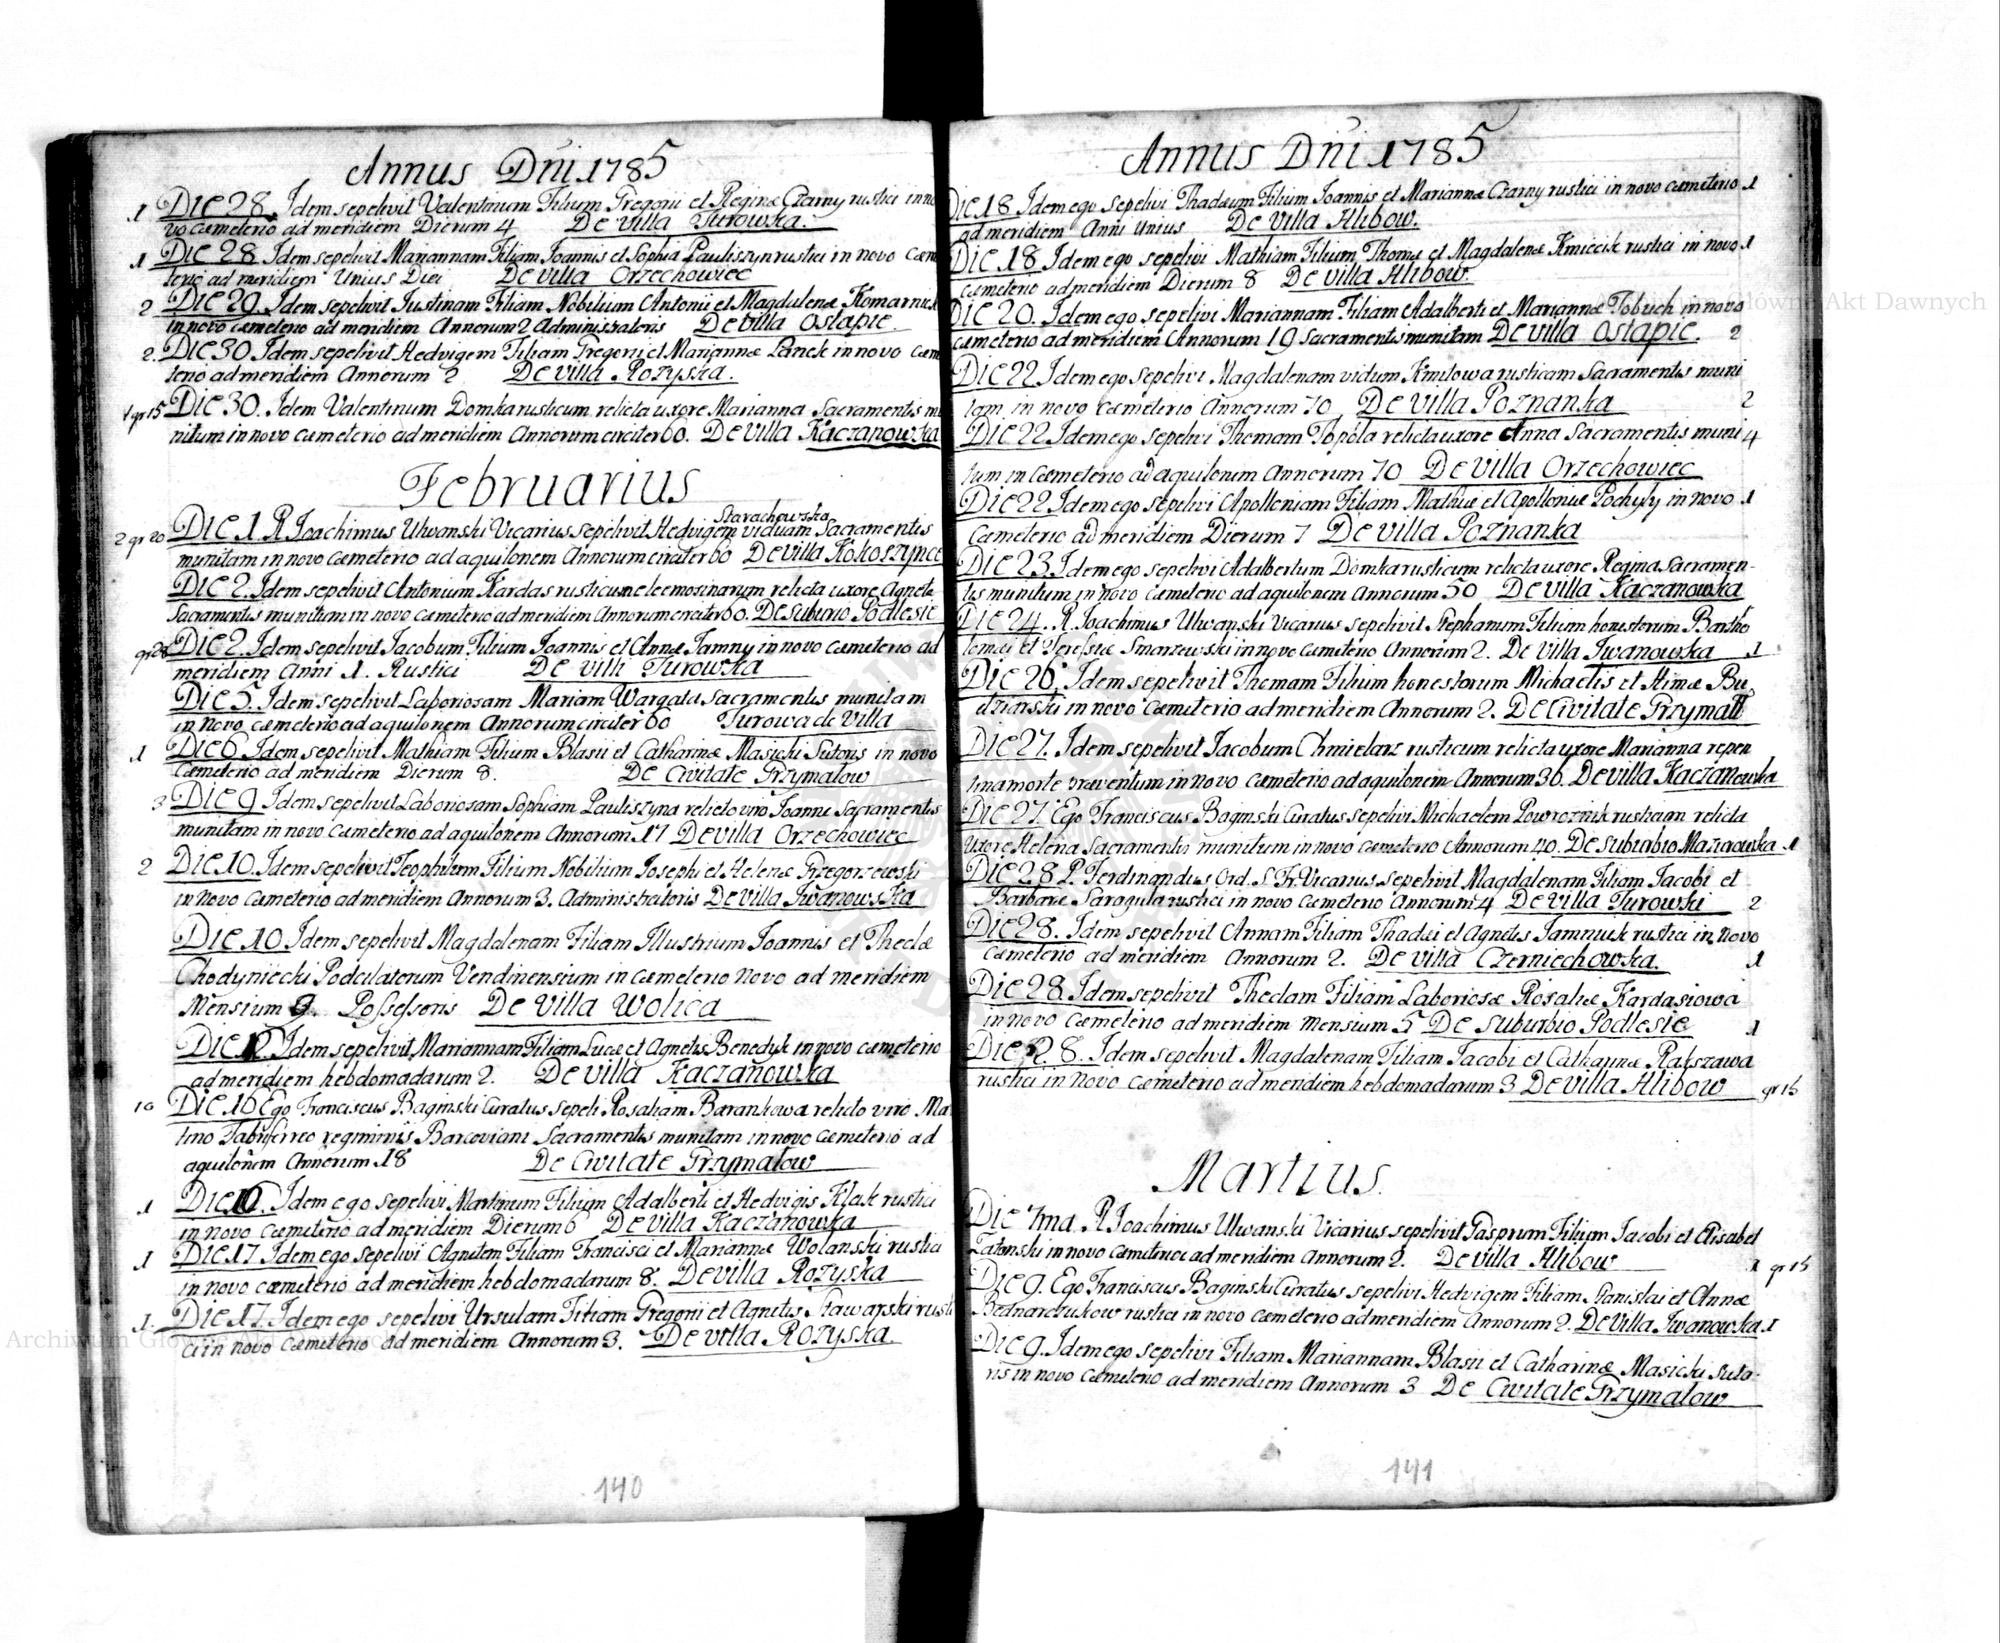 Annus Dni 1785
1 Die 28. Idem sepelivit Valentinum Filium Gregorii et Reginæ Czarny rustici in no
vo Cæmeterio ad meridiem Dierum 4 De Villa Turowska.
1 Die 28. Idem sepelivit Mariannam Filiam Joannis et Sophia Pauliszyn rustici in novo Cæm
terio ad meridiem Unius Diei De villa Orzechowiec
2 Die 29. Idem sepelivit Justinam Filiam Nobilium Antonii et Magdalenæ Komarnick
in novo cæmeterio ad meridiem Annorum 2 Administratoris De villa Ostapie.
2. Die 30. Idem sepelivit Hedvigem Filiam Gregorii et Mariannæ Panek in novo Cæm
terio ad meridiem Annorum 2 De villa Rozyska.
1 gr 15 Die 30. Idem Valentinum Domka rusticum relicta uxore Marianna Sacramentis mu
nitum in novo cæmeterio ad meridiem Annorum circiter 60. De Villa Kaczanowska
Februarius
Starachowska
2 gr 20 Die 1. R. Joachimus Ulwanski Vicarius sepelivit Hedvigem viduam Sacramentis
munitam in novo Cæmeterio ad aquilonem Annorum circiter 60 De villa Kokoszynce
Die 2. Idem sepelivit Antonium Kardas rusticum eleemosinarum relicta uxore Agnete
Sacramentis munitum in novo Cæmeterio ad meridiem Annorum circiter 60. De Suburio Podlesie
gr 28 Die 2. Idem sepelivit Jacobum Filium Joannis et Annæ Jamny in novo cæmeterio ad
meridiem Anni 1. Rustici De vill Turowska
Die 5. Idem sepelivit Laboriosam Mariam Wargata Sacramentis munitam
in novo cæmeterio ad aquilonem Annorum circiter 60 Turowa de Villa
1 Die 6. Idem sepelivit Mathiam Filium Blasii et Catharinæ Masicki Sutoris in novo
Cæmeterio ad meridiem Dierum 8. De Civitate Grzymatow
3 Die 9 Idem sepelivit Laboriosam Sophiam Pauliszyna relicto viro Joanne Sacramentis
munitam in novo Cæmeterio ad aquilonem Annorum 17 De villa Orzechowiec
2 Die 10. Idem sepelivit Teophilum Filium Nobilium Josephi et Helenæ Grzegorzewski
in Novo Cæmeterio ad meridiem Annorum 3. Administratoris De Villa Iwanowska
Die 10. Idem sepelivit Magdalenam Filiam Illustrium Joannis et Theclæ
Chodyniecki Podcilatorum Vendinensium in cæmeterio Novo ad meridiem
Mensium 9. Possessoris De Villa Wolica
Die 12. Idem sepelivit Mariannam Filiam Lucæ et Agnetis Benedyk in novo cæmeterio
ad meridiem hebdomadarum 2. De Villa Kaczanowka
10 Die 16 Ego Franciscus Baginski Curatus sepeli Rosaliam Barankowa relicto viro Ma
tino regiminis Barcoviani Sacramentis munitam in novo Cæmeterio ad
aquilonem Annorum 18 De Civitate Grzymatow
1 Die 16. Idem ego sepelivi Martinum Filium Adalberti et Hedvigis Klak rustici
in novo Cæmeterio ad meridiem Dierum 6 De villa Kaczanowka
1 Die 17. Idem ego sepelivi Agnetem Filiam Francisci et Mariannæ Wolanski rustici
in novo cæmeterio ad meridiem hebdomadarum 8. De villa Rozyska
1. Die 17. Idem ego sepelivi Ursulam Filiam Gregorii et Agnetis Stawarski rusti
ci in novo Cæmeterio ad meridiem Annorum 3. De villa Rozyska
140
Annus Dni 1785
Die 18 Idem ego sepelivi Thadæum Filium Joannis et Mariannæ Czarny rustici in novo cæmeterio 1
ad meridiem Anni Unius De Villa Hlibow.
Die 18 Idem ego sepelivi Mathiam Filium Thomæ et Magdalenæ Kmiecik rustici in novo 1
cæmeterio ad meridiem Dierum 8 De Villa Hlibow
Die 20. Idem ego sepelivi Mariannam Filiam Adalberti et Mariannæ Tobuch in novo
cæmeterio ad meridiem Annorum 19 Sacramentis munitam De Villa Ostapie. 2
Die 22 Idem ego sepelivi Magdalenam viduam Kmitowa rusticam Sacramentis muni
tam in novo Cæmeterio Annorum 70 De Villa Poznanka 2
Die 22 Idem ego sepelivi Thomam Topola relicta uxore Anna Sacramentis muni 4
tum in Cæmeterio ad aquilonem Annorum 70 De Villa Orzechowiec
Die 22 Idem ego sepelivi Apolloniam Filiam Mathiæ et Apolloniæ Pochyly in novo 1
Cæmeterio ad meridiem Dierum 7 De Villa Poznanka
Die 23. Idem ego sepelivi Adalbertum Domka rusticum relicta uxore Regina Sacramen-
tis munitum in novo Cæmeterio ad aquilonem Annorum 50 De Villa Kaczanowka
Die 24. R. Joachimus Ulwanski Vicarius sepelivit Stephanum Filium honestorum Bartho
lomæi et Teressiæ Smarzewski in novo Cæmiterio Annorum 2. De Villa Iwanowska 1
Die 26. Idem sepelivit Thomam Filium honestorum Michaelis et Annæ Bu
dziarski in novo Cæmiterio ad meridiem Annorum 2. De Civitate Grzymatt
Die 27. Idem sepelivit Jacobum Chmielarz rusticum relicta uxore Marianna repen
tina morte præventum in novo Cæmeterio ad aquilonem Annorum 36. De Villa Kaczanowka
Die 27. Ego Franciscus Baginski Curatus sepelivi Michaelem Powroznik rusticum relicta
Uxore Helena Sacramentis munitum in novo Cæmeterio Annorum 40. De suburbio Mazurowka 1
Die 28 P. Ferdinandus Ord. S. Fr. Vicarius sepelivit Magdalenam Filiam Jacobi et
Barbaræ Saragula rustici in novo Cæmeterio Annorum 4 De Villa Turowki 2
Die 28. Idem sepelivit Annam Filiam Thadæi et Agnetis Jamniuk rustici in Novo
Cæmeterio ad meridiem Annorum 2. De villa Czerniechowska. 1
Die 28. Idem sepelivit Theclam Filiam Laboriosæ Rosaliæ Kardasiowa
in novo Cæmeterio ad meridiem Mensium 5 De Suburbio Podlesie 1
Die 28. Idem sepelivit Magdalenam Filiam Jacobi et Catharinæ Rakszawa
rustici in Novo Cæmeterio ad meridiem hebdomadarum 3 De Villa Hlibow gr 15
Martius.
Die 7ma. R. Joachimus Ulwanski Vicarius sepelivit Gasprum Filium Jacobi et Elisabet
Zatonski in novo Cæmiterio ad meridiem Annorum 2. De Villa Hlibow 1 gr 15
Die 9. Ego Franciscus Baginski Curatus sepelivi Hedvigem Filiam Stanislai et Annæ
Bednarczukow rustici in novo Cæmeterio ad meridiem Annorum 2. De Villa Iwanowka 1
Die 9. Idem ego sepelivi Filiam Mariannam Blasii et Catharinæ Masicki Suto-
ris in novo Cæmeterio ad meridiem Annorum 3 De Civitate Grzymatow
141
Archiwum Główne Akt Dawnych
Archiwum Główne Akt Dawnych